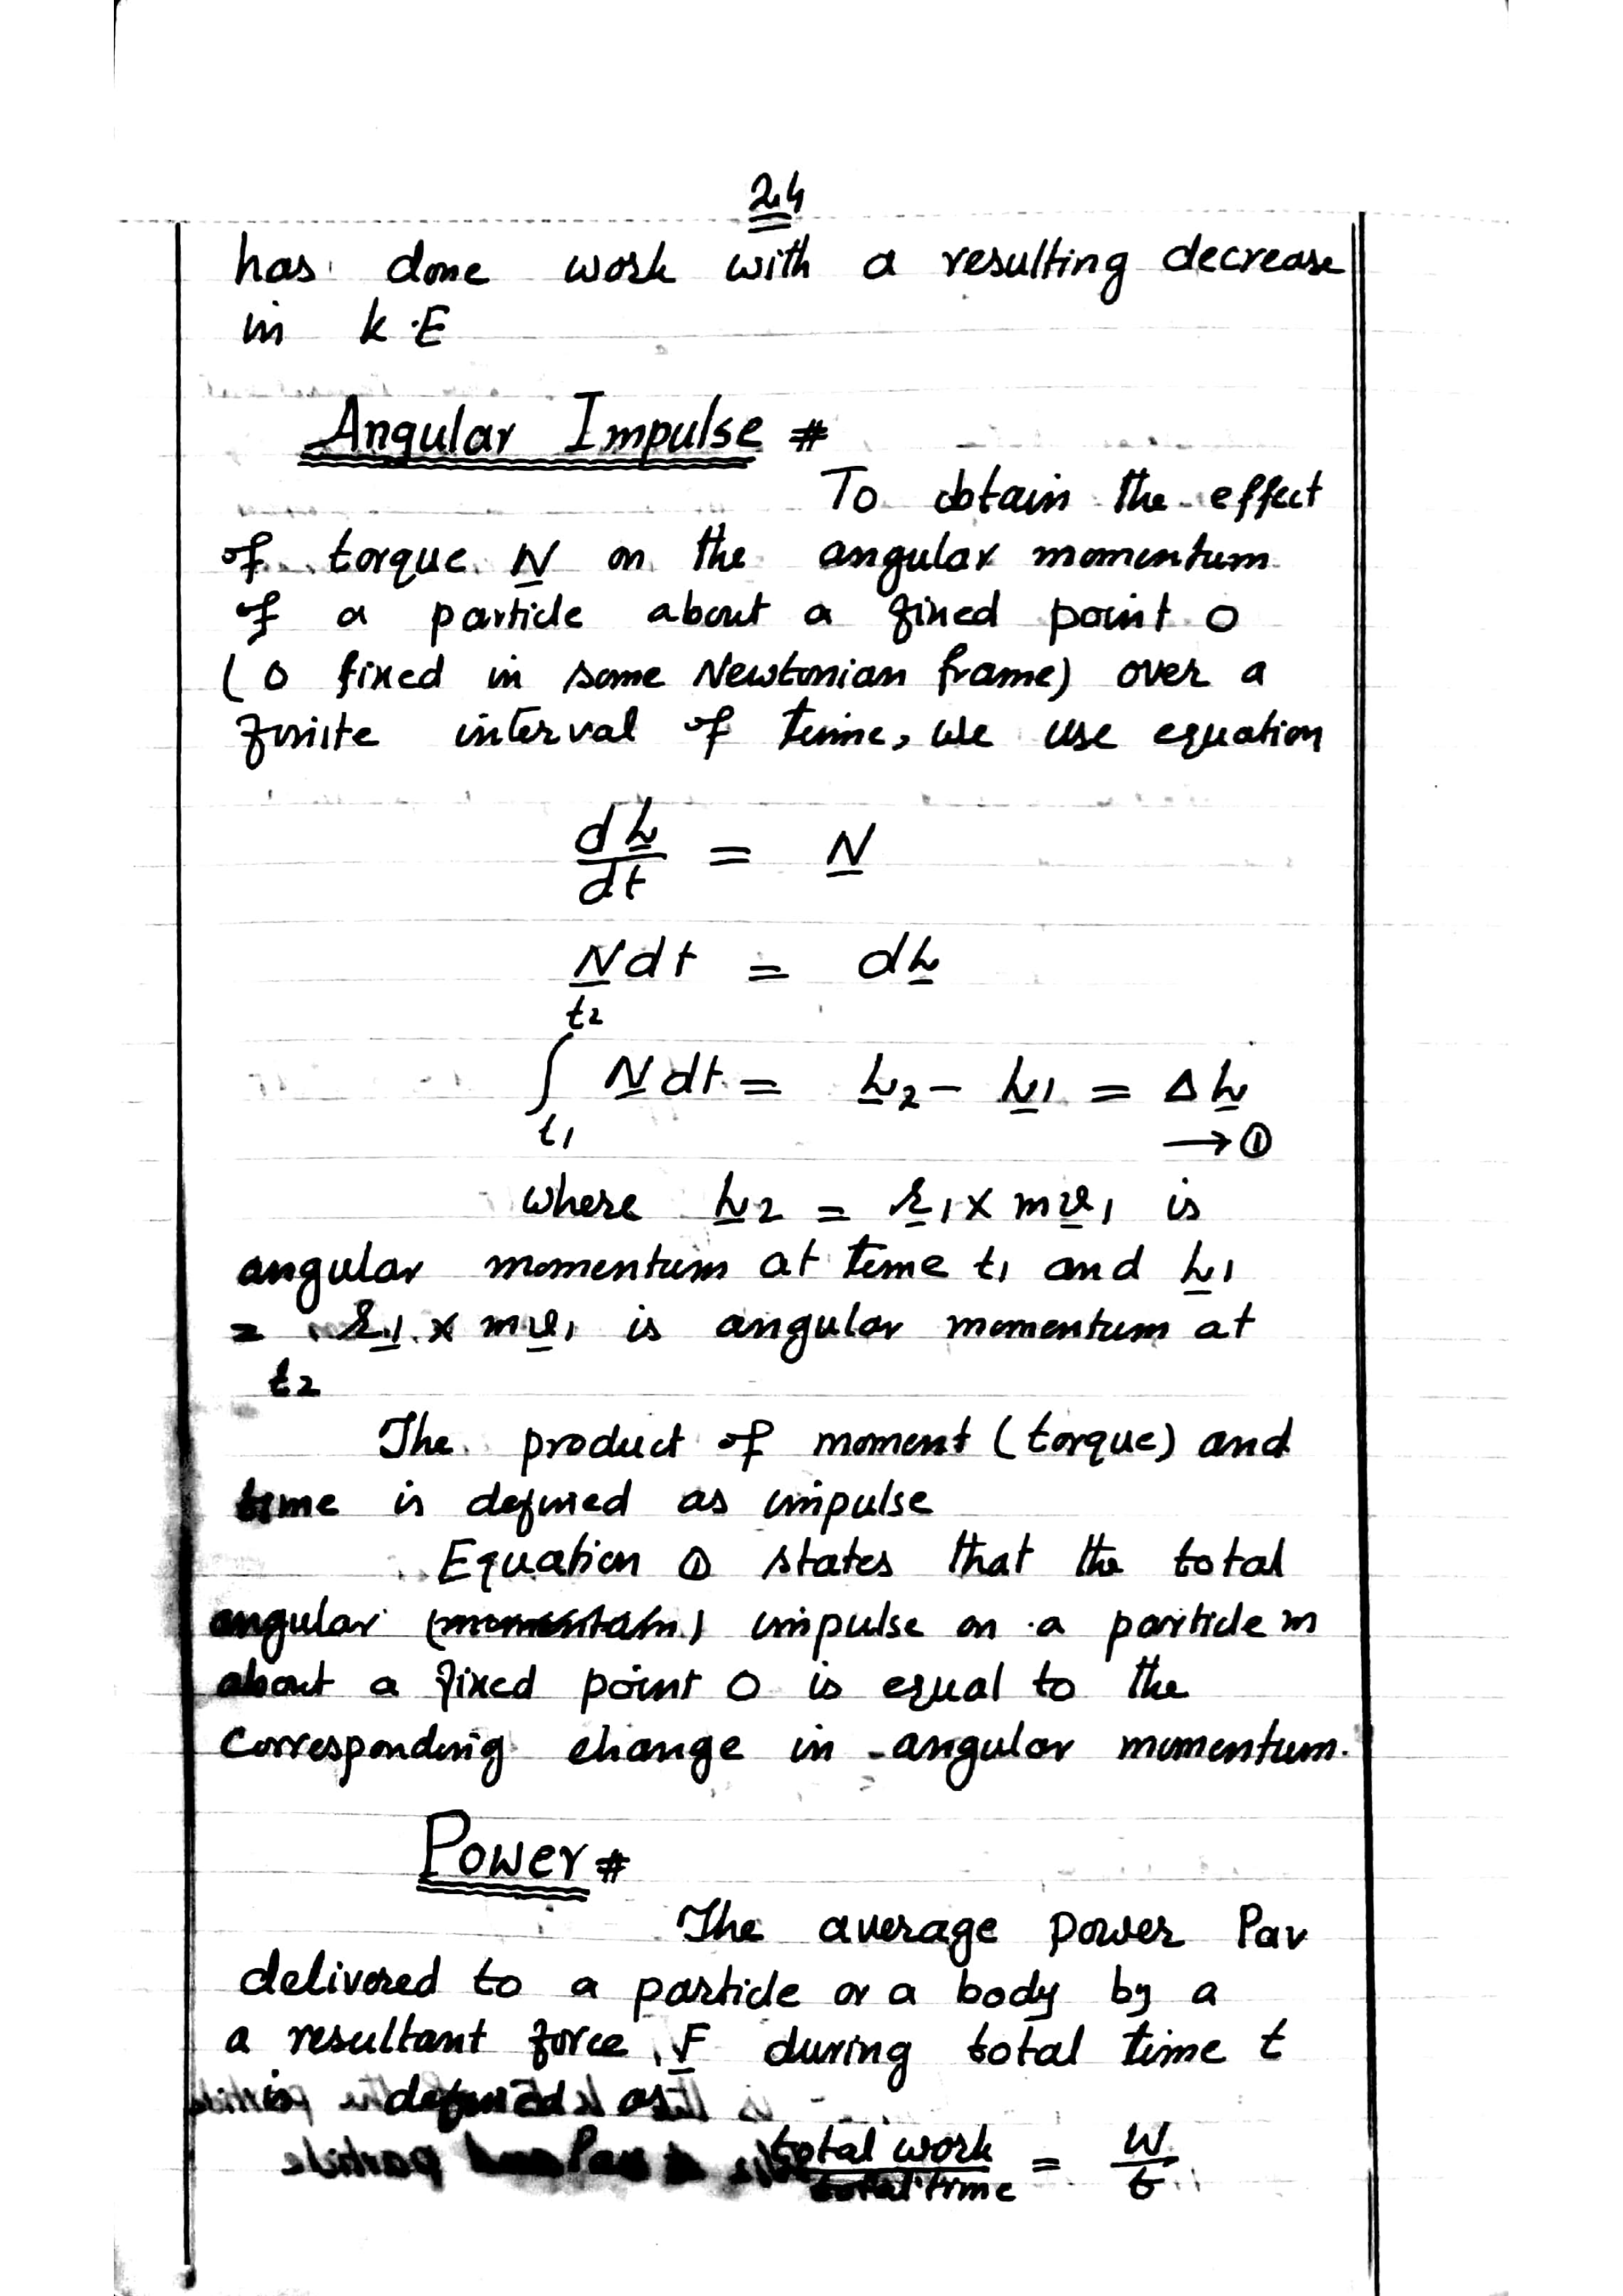 24
has done work with a resulting decrease
in k.E
Angular Impulse #
To obtain the effect
of torque N on the angular momentum
of a particle about a fixed point O
(O fixed in some Newtonian frame) over a
finite interval of time, we use equation
dh/dt = N
N dt = dh
t2
∫ N dt = h2 - h1 = Δh
t1 → ①
where h2 = r1 x m v1 is
angular momentum at time t1 and h1
= r1 x m v1 is angular momentum at
t2
The product of moment (torque) and
time is defined as impulse
Equation ① states that the total
angular (momentum) impulse on a particle m
about a fixed point O is equal to the
Corresponding change in angular momentum.
Power #
The average power Pav
delivered to a particle or a body by a
a resultant force F during total time t
is defined as
Pav = total work / total time = W / t